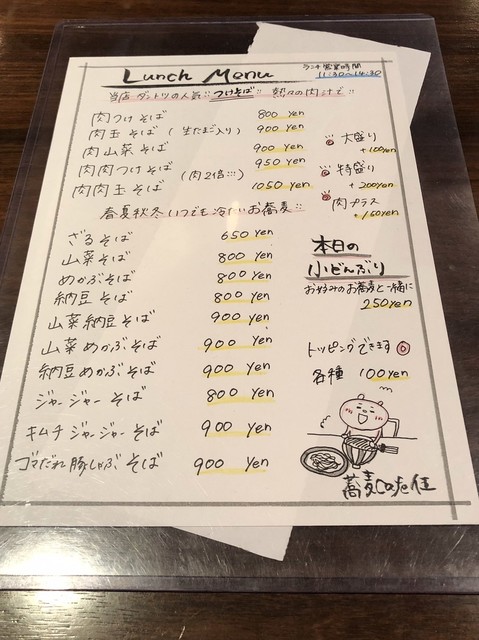 Lunch Menu
ランチ営業時間
11:30〜14:30
当店ダントツの人気!! つけそば!! 熱々の肉汁で!!
肉つけそば 800 yen
肉玉そば (生たまご入り) 900 yen
肉山菜そば 900 yen
肉肉つけそば 950 yen
(肉2倍!!!)
肉肉玉そば 1050 yen
大盛り
+100yen
特盛り
+200yen
肉プラス
+150yen
春夏秋冬いつでも冷たいお蕎麦!!
ざるそば 650 yen
山菜そば 800 yen
めかぶそば 800 yen
納豆そば 800 yen
山菜納豆そば 900 yen
山菜めかぶそば 900 yen
納豆めかぶそば 900 yen
ジャージャーそば 800 yen
キムチジャージャーそば 900 yen
ゴマだれ豚しゃぶそば 900 yen
本日の
小どんぶり
お好みのお蕎麦と一緒に
250yen
トッピングできます
各種 100yen
蕎麦